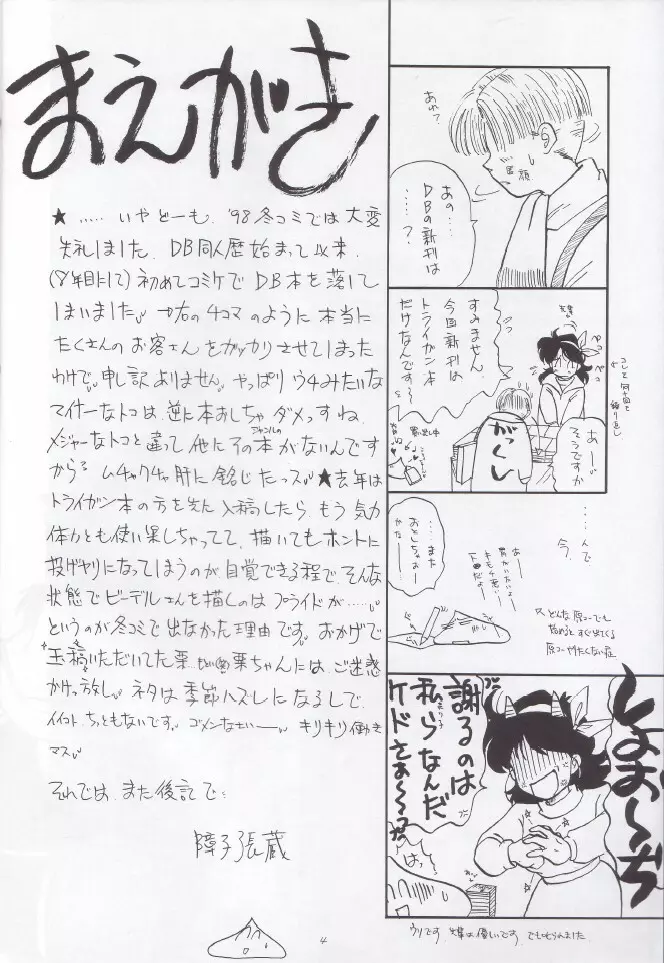 まえがき
★ ‥‥ いやどーも、'98冬コミでは大変
失礼しました。DB同人歴始まって以来、
(8年目にして)初めてコミケでDB本を落して
しまいました。右の4コマのように本当に
たくさんのお客さんをガッカリさせてしまった
わけで、申し訳ありません。やっぱりウチみたいな
マイナーなトコは、逆に本おとしちゃダメっすね。
メジャーなトコと違って他にそのジャンルの本がないんです
から。ムチャクチャ肝に銘じたっス。★去年は
トライガン本の方を先に入稿したら、もう気力
体力とも使い果しちゃってて、描いてもホントに
投げヤリになってしまうのが自覚できる程で、そんな
状態でビーデルさんを描くのはプライドが‥‥。
というのが冬コミで出なかった理由です。おかげで
玉稿いただいてた栗ちゃんには、ご迷惑
かけっ放し。ネタは季節ハズレになるしで、
イイコトちっともないです。ゴメンなさいーー。キリキリ働き
マス。
それでは、また後記で‥
障子張蔵
あれ?
あの‥‥
DBの新刊は
‥‥?
すみません、
今回新刊は
トライガン本
だけなんです〜
ペコ
ペコ
あーー
そうですか
がっくし
コレを何十回と
繰り返し
‥‥んで
今、
‥‥また
おとしちゃおー
かなーー
あー
胃がいたいよー
キモチ悪いー
どんな原コーでも
始めるとすぐ出てくる
原コーやりたくない症
しょお〜ぢ
謝るのは
私らなんだ
ケドさぁ〜〜っ
はっ
ウソです。先輩は優しいです。でも叱られました。
4